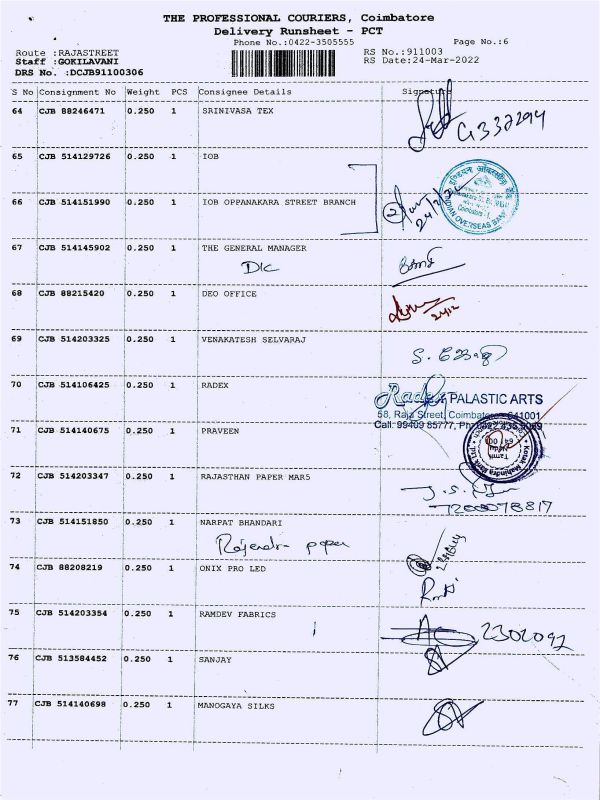 THE PROFESSIONAL COURIERS, Coimbatore
Delivery Runsheet - PCT
Phone No.:0422-3505555
Page No.:6
Route :RAJASTREET
Staff :GOKILAVANI
DRS No. :DCJB91100306
RS No.:911003
RS Date:24-Mar-2022
S No Consignment No Weight PCS Consignee Details Signature
64 CJB 88246471 0.250 1 SRINIVASA TEX
65 CJB 514129726 0.250 1 IOB
66 CJB 514151990 0.250 1 IOB OPPANAKARA STREET BRANCH
INDIAN OVERSEAS BANK
67 CJB 514145902 0.250 1 THE GENERAL MANAGER
DIC
68 CJB 88215420 0.250 1 DEO OFFICE
69 CJB 514203325 0.250 1 VENAKATESH SELVARAJ
70 CJB 514106425 0.250 1 RADEX
Radex PALASTIC ARTS
58, Raja Street, Coimbatore - 641001
Call: 99409 85777, Ph: 0422
71 CJB 514140675 0.250 1 PRAVEEN
72 CJB 514203347 0.250 1 RAJASTHAN PAPER MAR5
7200078817
73 CJB 514151850 0.250 1 NARPAT BHANDARI
Rajendra paper
74 CJB 88208219 0.250 1 ONIX PRO LED
75 CJB 514203354 0.250 1 RAMDEV FABRICS
2302092
76 CJB 513584452 0.250 1 SANJAY
77 CJB 514140698 0.250 1 MANOGAYA SILKS